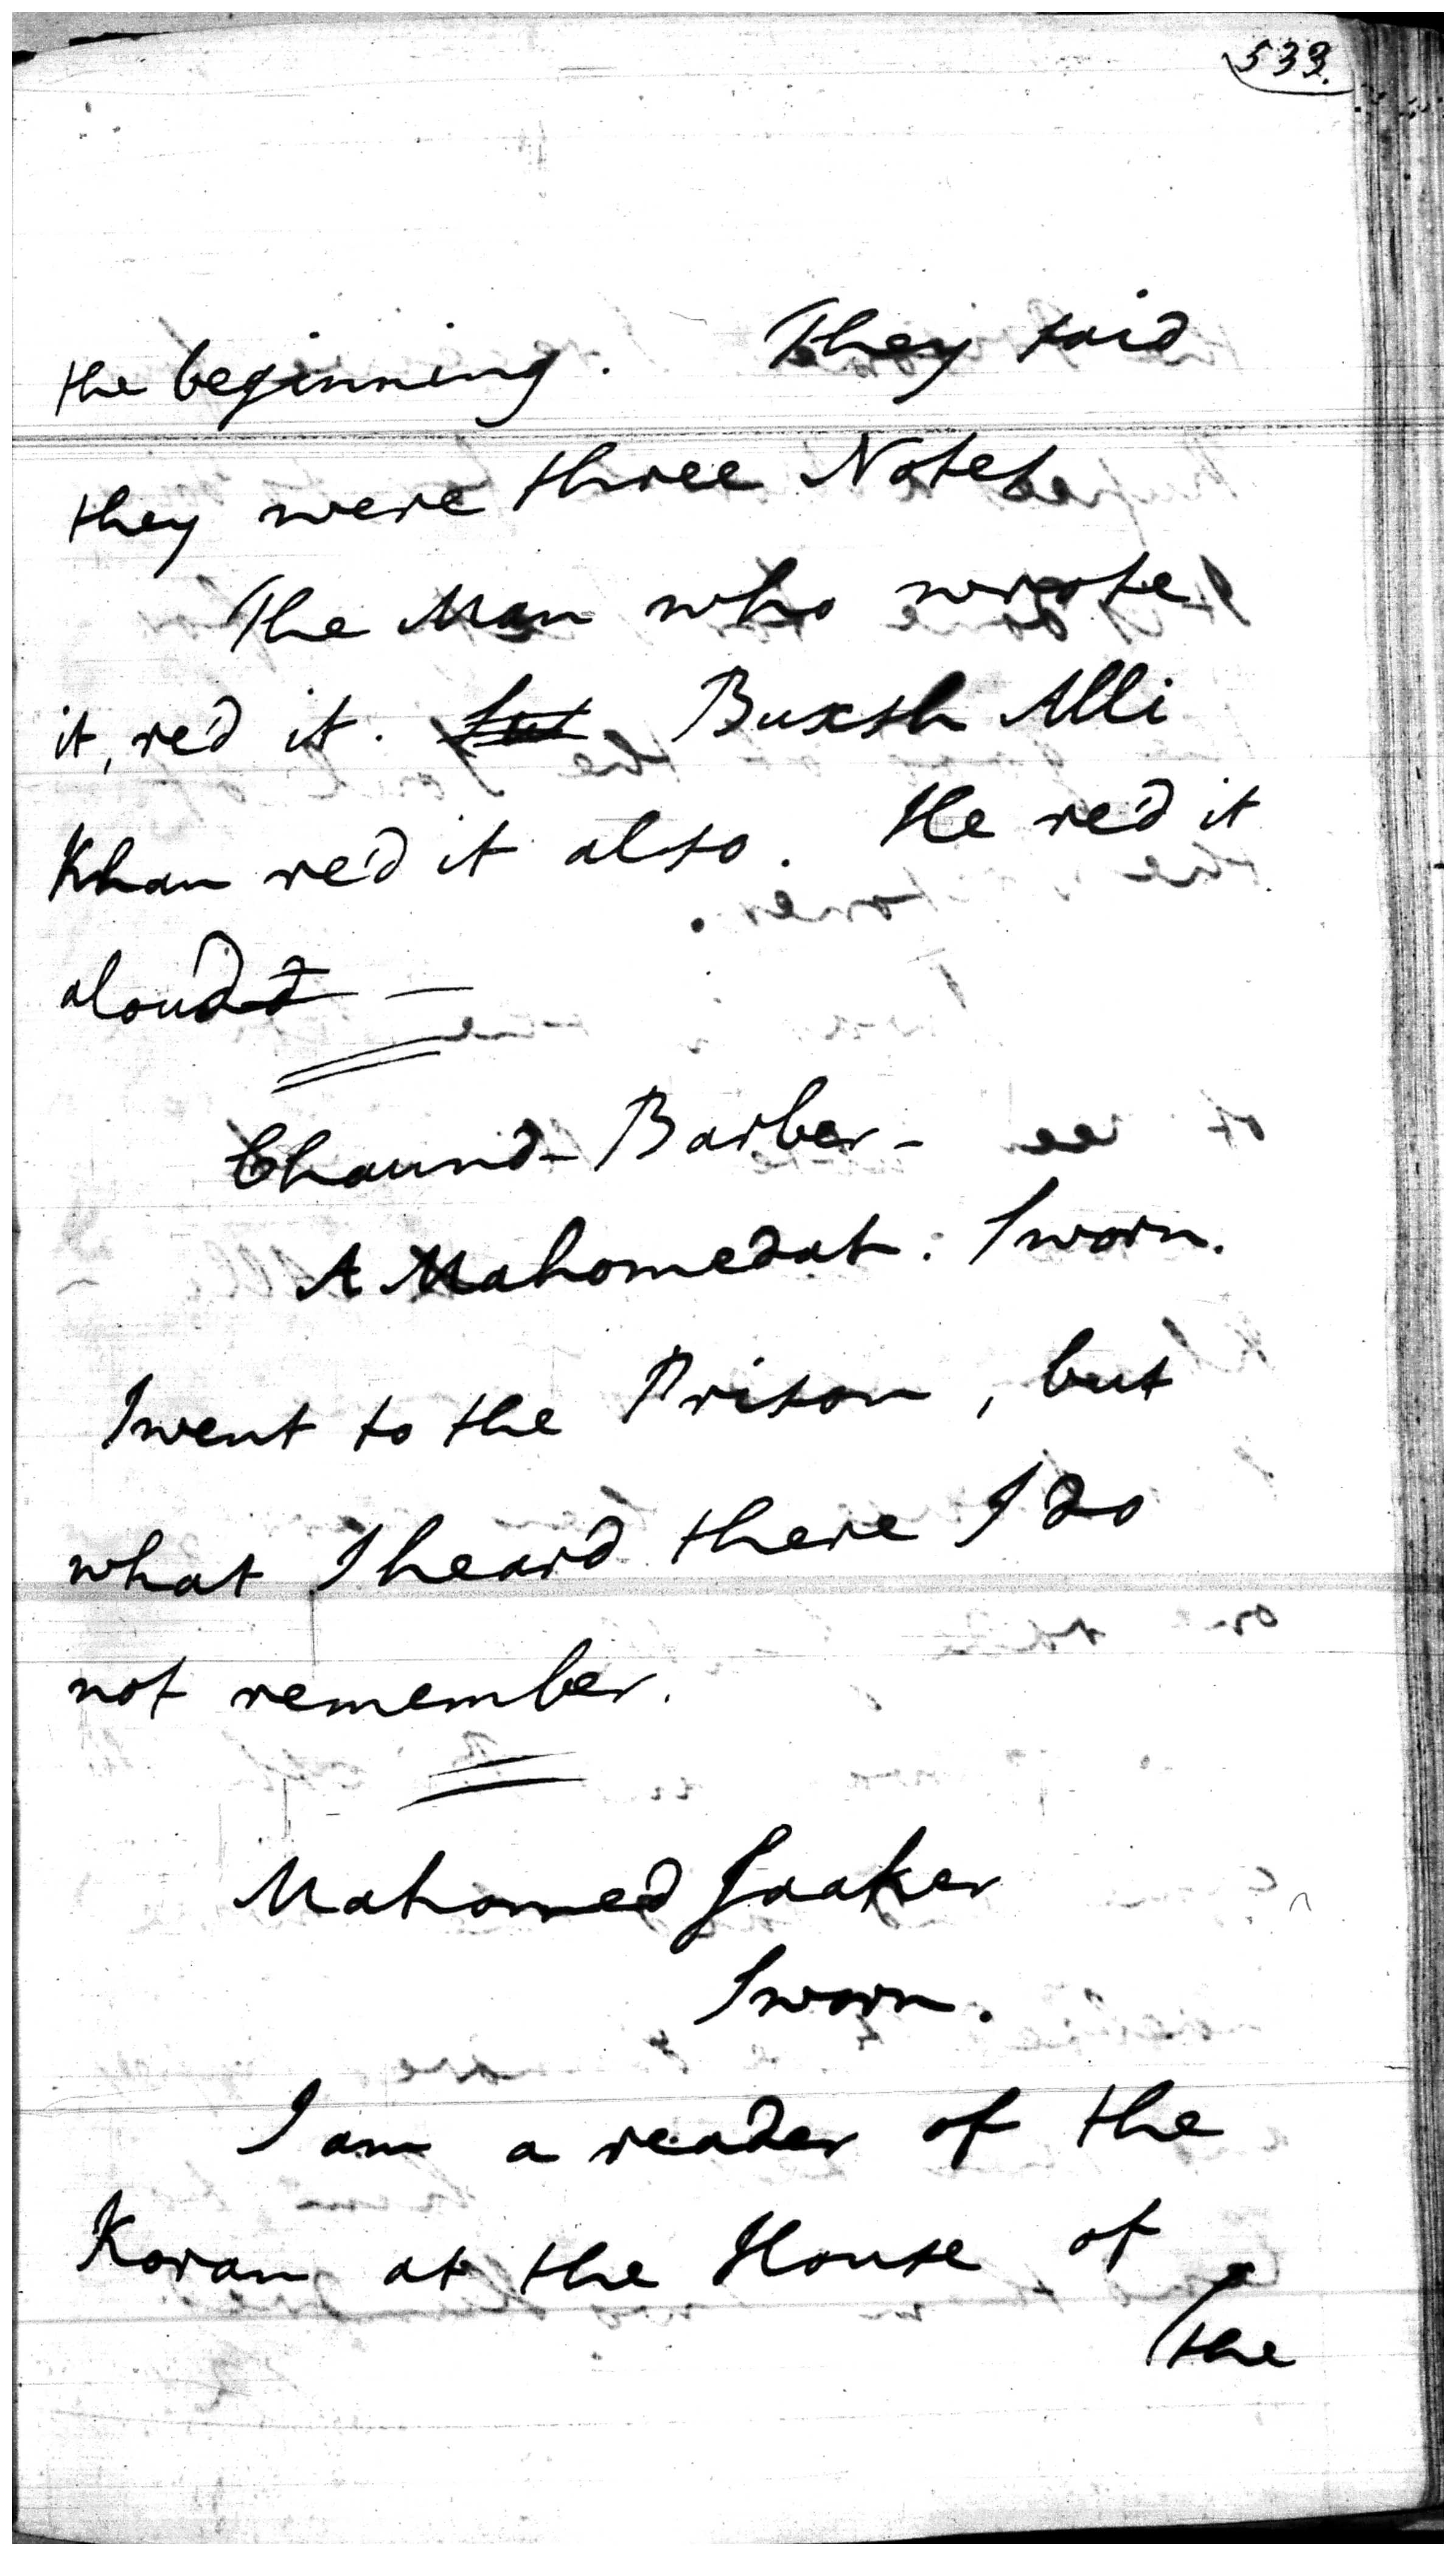 533.
the beginning. They said
they were three Notes
The Man who wrote
it, re'd it. Buxsh Alli
Khan re'd it also. He re'd it
aloud —
Chaund - Barber -
A Mahomedan: Sworn.
I went to the Prison, but
what I heard there I do
not remember.
Mahomed
Sworn.
I am a reader of the
Koran at the House of
the